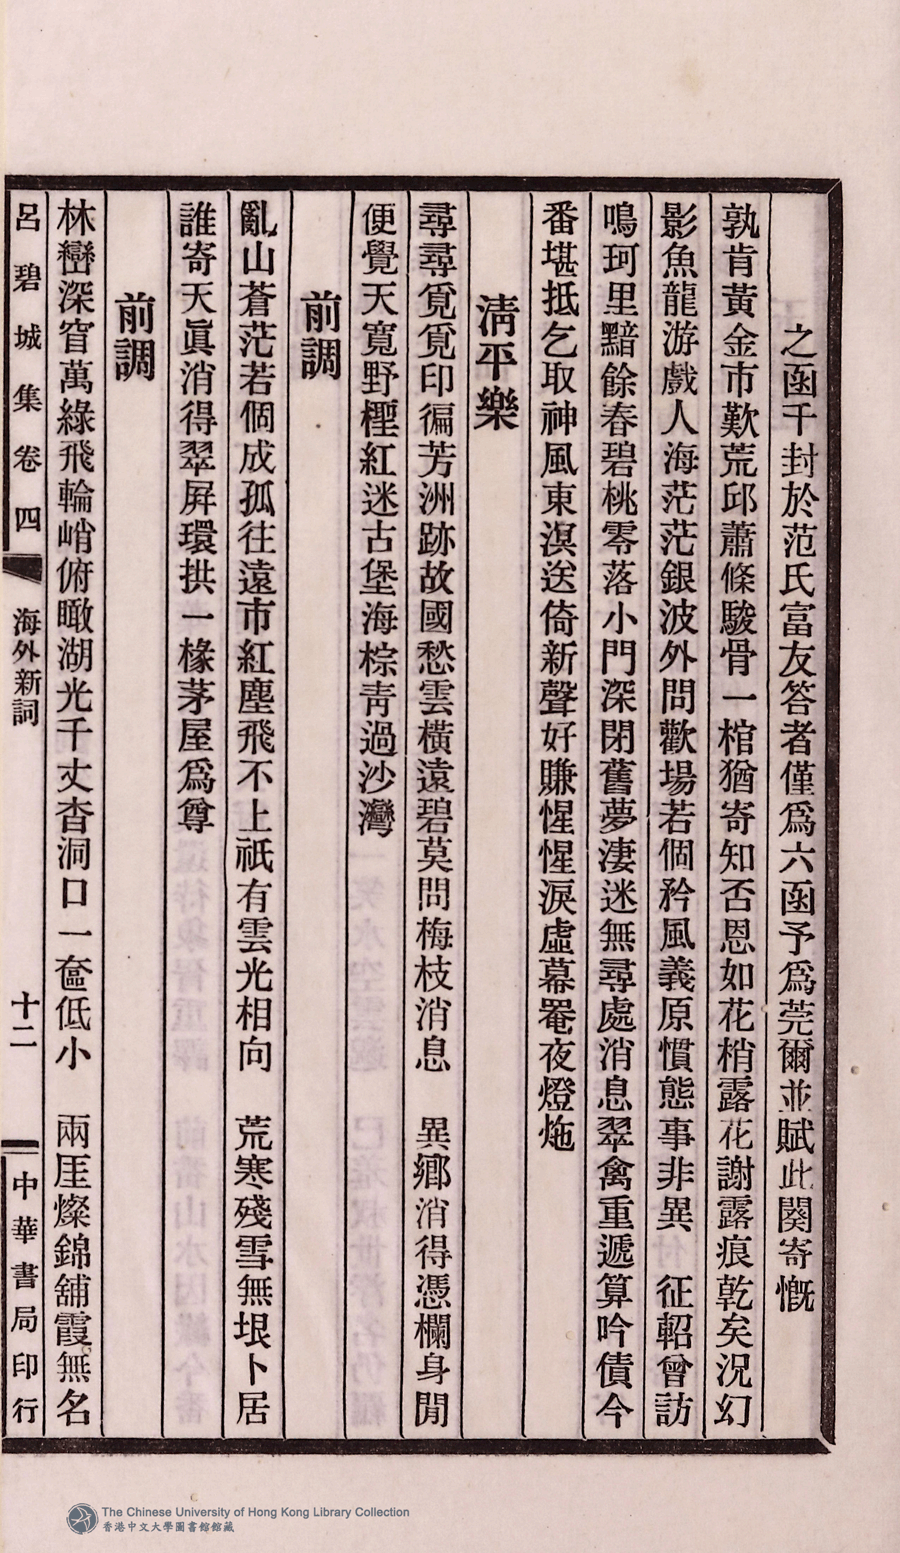 之函千封於范氏富友答者僅爲六函予爲莞爾並賦此闋寄慨
孰肯黃金市歎荒邱蕭條駿骨一棺猶寄知否恩如花梢露花謝露痕乾矣況幻
影魚龍游戲人海茫茫銀波外問歡場若個矜風義原慣態事非異　征軺曾訪
鳴珂里黯餘春碧桃零落小門深閉舊夢淒迷無尋處消息翠禽重遞算吟債今
番堪抵乞取神風東溟送倚新聲好賺惺惺淚虛幕罨夜燈炧
淸平樂
尋尋覓覓印徧芳洲跡故國愁雲橫遠碧莫問梅枝消息　異鄉消得憑欄身閒
便覺天寬野檉紅迷古堡海棕靑過沙灣
前調
亂山蒼茫若個成孤往遠市紅塵飛不上祇有雲光相向　荒寒殘雪無垠卜居
誰寄天眞消得翠屛環拱一椽茅屋爲尊
前調
林巒深窅萬綠飛輪峭俯瞰湖光千丈杳洞口一奩低小　兩厓燦錦舖霞無名
呂碧城集卷四
海外新詞
十二
中華書局印行
The Chinese University of Hong Kong Library Collection
香港中文大學圖書館館藏